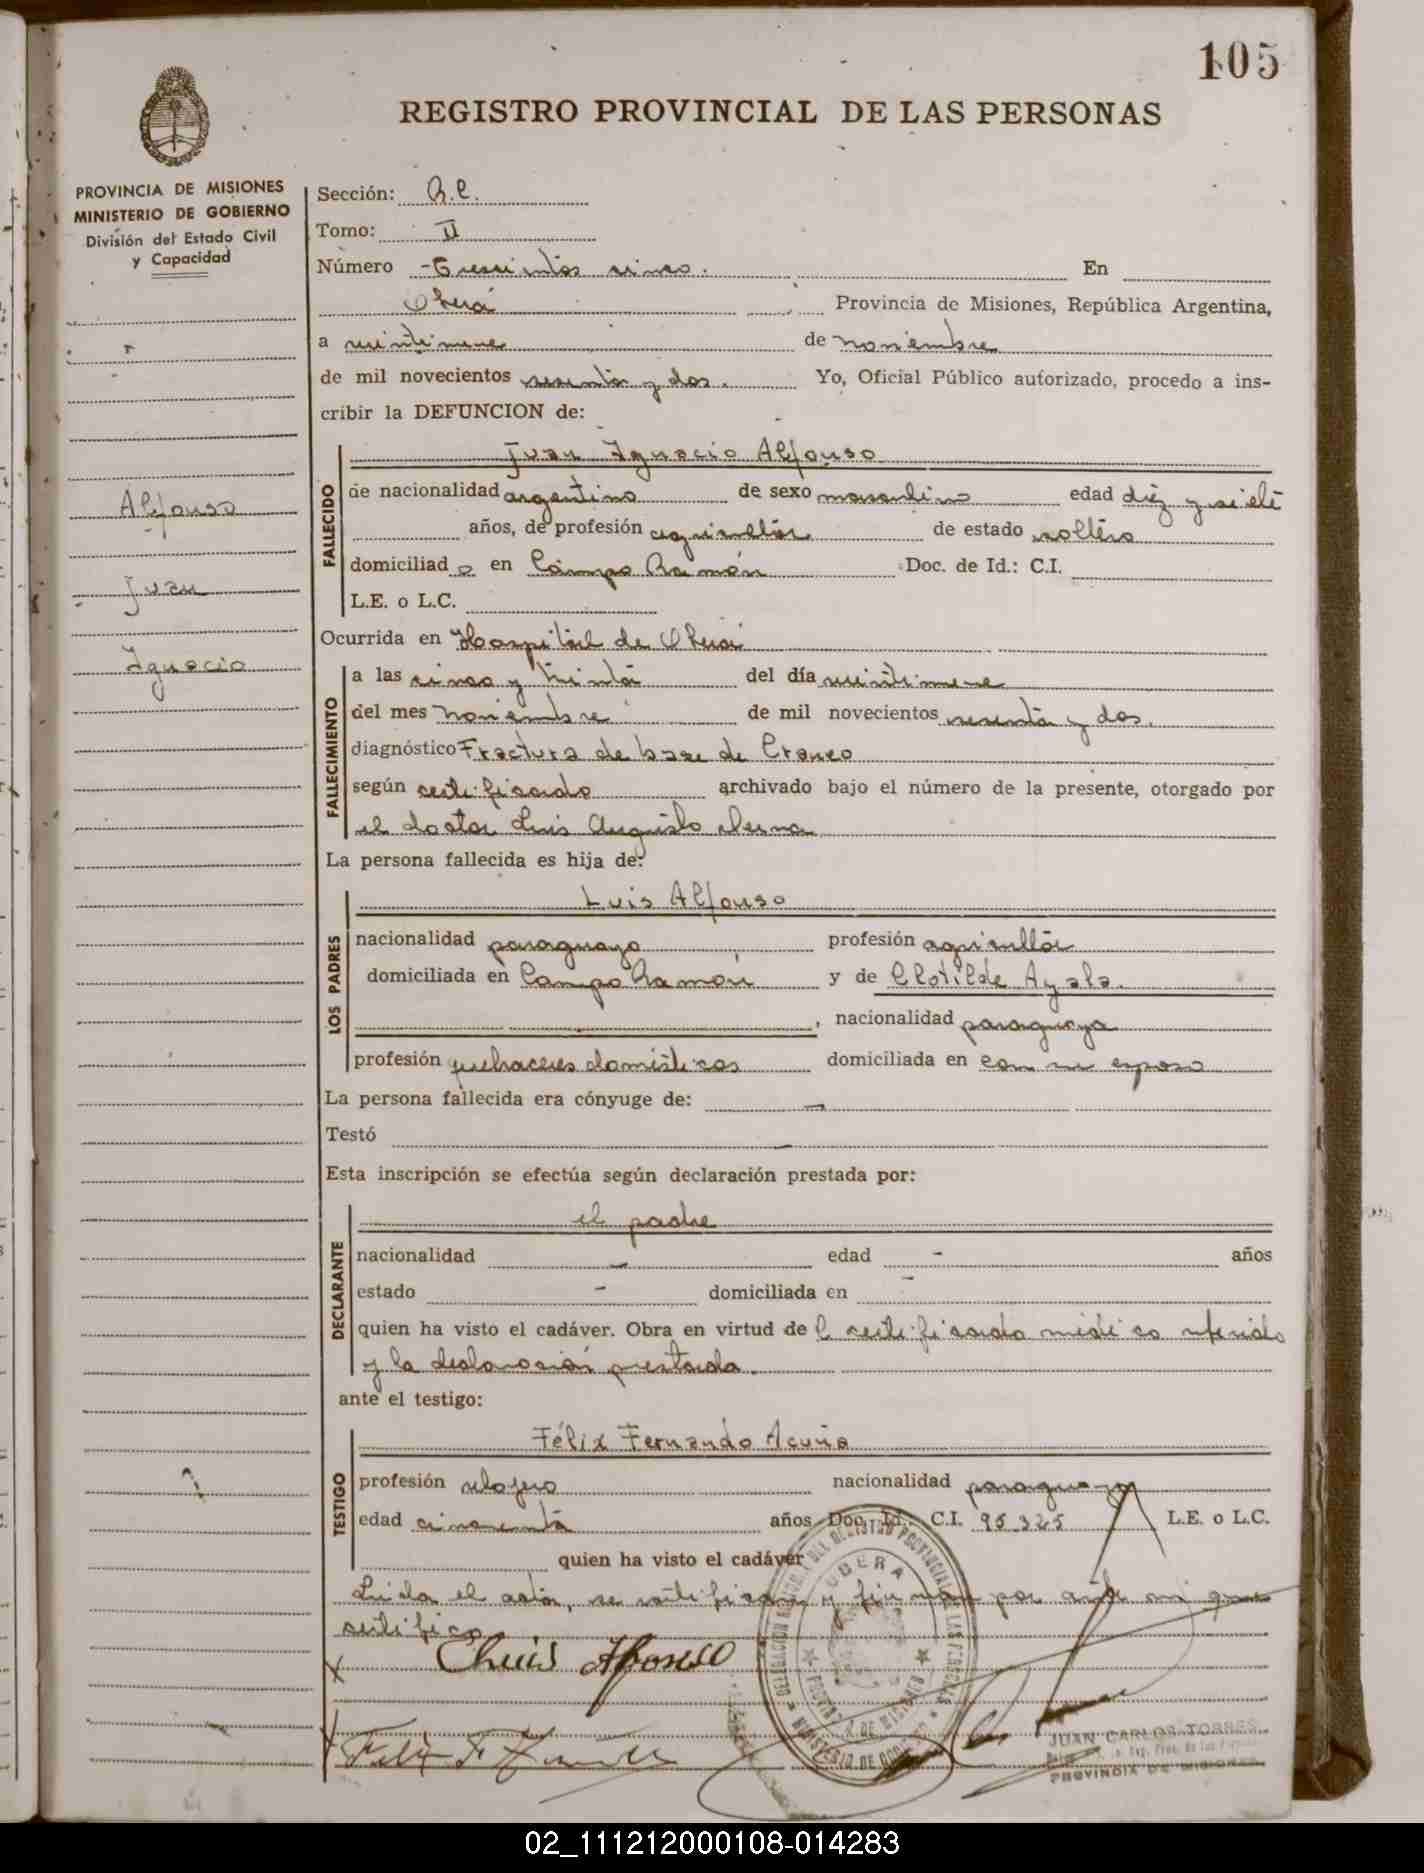 105
REGISTRO PROVINCIAL DE LAS PERSONAS
PROVINCIA DE MISIONES
MINISTERIO DE GOBIERNO
División del Estado Civil
y Capacidad
Alfonso
Juan
Ignacio
Sección: R.C.
Tomo: II
Número -Trescientos cinco. En
Oberá Provincia de Misiones, República Argentina,
a veintinueve de noviembre
de mil novecientos sesenta y dos. Yo, Oficial Público autorizado, procedo a ins-
cribir la DEFUNCION de:
Juan Ignacio Alfonso
FALLECIDO
de nacionalidad argentino de sexo masculino edad diez y siete
años, de profesión agricultor de estado soltero
domiciliado en Campo Ramón Doc. de Id.: C.I.
L.E. o L.C.
Ocurrida en Hospital de Oberá
FALLECIMIENTO
a las cinco y treinta del día veintinueve
del mes noviembre de mil novecientos sesenta y dos.
diagnóstico Fractura de base de Craneo
según certificado archivado bajo el número de la presente, otorgado por
el doctor Luis Augusto
La persona fallecida es hija de:
Luis Alfonso
LOS PADRES
nacionalidad paraguayo profesión agricultor
domiciliada en Campo Ramón y de Clotilde Ayala.
, nacionalidad paraguaya
profesión quehaceres domésticos domiciliada en con su esposo
La persona fallecida era cónyuge de: -
Testó -
Esta inscripción se efectúa según declaración prestada por:
el padre
DECLARANTE
nacionalidad - edad - años
estado - domiciliada en -
quien ha visto el cadáver. Obra en virtud del certificado médico referido
y la declaración prestada.
ante el testigo:
Félix Fernando Acuña
TESTIGO
profesión relojero nacionalidad paraguayo
edad cincuenta años Doc. Id.: C.I. 95325 L.E. o L.C.
quien ha visto el cadáver
Leída el acta, se ratifican y firman por ante mí que
certifico.
OBERA
Luis Alfonso
JUAN CARLOS TORRES
PROVINCIA DE MISIONES
02_111212000108-014283